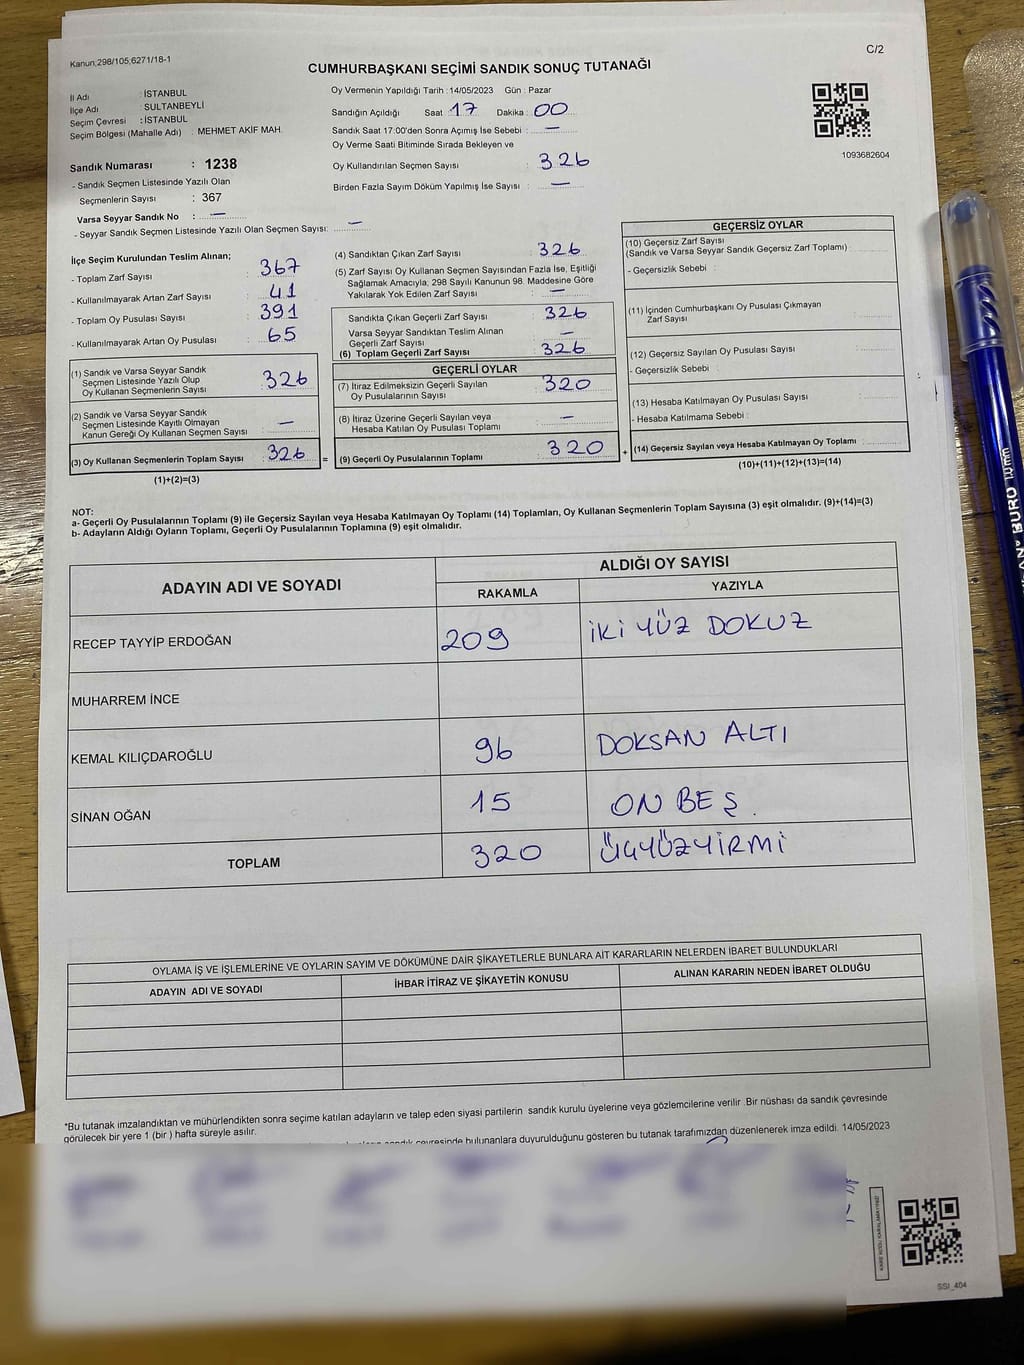 Kanun;298/105,6271/18-1
C/2
CUMHURBAŞKANI SEÇİMİ SANDIK SONUÇ TUTANAĞI
İl Adı : İSTANBUL
İlçe Adı : SULTANBEYLİ
Seçim Çevresi : İSTANBUL
Seçim Bölgesi (Mahalle Adı) : MEHMET AKİF MAH.
Sandık Numarası : 1238
- Sandık Seçmen Listesinde Yazılı Olan
Seçmenlerin Sayısı : 367
Varsa Seyyar Sandık No : —
- Seyyar Sandık Seçmen Listesinde Yazılı Olan Seçmen Sayısı: —
Oy Vermenin Yapıldığı Tarih : 14/05/2023 Gün : Pazar
Sandığın Açıldığı Saat 17 Dakika : 00
Sandık Saat 17:00'den Sonra Açımış İse Sebebi : —
Oy Verme Saati Bitiminde Sırada Bekleyen ve
Oy Kullandırılan Seçmen Sayısı : 326
Birden Fazla Sayım Döküm Yapılmış İse Sayısı : —
1093682604
İlçe Seçim Kurulundan Teslim Alınan;
- Toplam Zarf Sayısı : 367
- Kullanılmayarak Artan Zarf Sayısı : 41
- Toplam Oy Pusulası Sayısı : 391
- Kullanılmayarak Artan Oy Pusulası : 65
(1) Sandık ve Varsa Seyyar Sandık
Seçmen Listesinde Yazılı Olup
Oy Kullanan Seçmenlerin Sayısı : 326
(2) Sandık ve Varsa Seyyar Sandık
Seçmen Listesinde Kayıtlı Olmayan
Kanun Gereği Oy Kullanan Seçmen Sayısı : —
(3) Oy Kullanan Seçmenlerin Toplam Sayısı : 326 =
(1)+(2)=(3)
(4) Sandıktan Çıkan Zarf Sayısı : 326
(5) Zarf Sayısı Oy Kullanan Seçmen Sayısından Fazla İse, Eşitliği
Sağlamak Amacıyla, 298 Sayılı Kanunun 98. Maddesine Göre
Yakılarak Yok Edilen Zarf Sayısı : —
Sandıkta Çıkan Geçerli Zarf Sayısı : 326
Varsa Seyyar Sandıktan Teslim Alınan
Geçerli Zarf Sayısı : —
(6) Toplam Geçerli Zarf Sayısı : 326
GEÇERLİ OYLAR
(7) İtiraz Edilmeksizin Geçerli Sayılan
Oy Pusulalarının Sayısı : 320
(8) İtiraz Üzerine Geçerli Sayılan veya
Hesaba Katılan Oy Pusulası Toplamı : —
(9) Geçerli Oy Pusulalarının Toplamı : 320 +
GEÇERSİZ OYLAR
(10) Geçersiz Zarf Sayısı
(Sandık ve Varsa Seyyar Sandık Geçersiz Zarf Toplamı) :
- Geçersizlik Sebebi :
(11) İçinden Cumhurbaşkanı Oy Pusulası Çıkmayan
Zarf Sayısı :
(12) Geçersiz Sayılan Oy Pusulası Sayısı :
- Geçersizlik Sebebi :
(13) Hesaba Katılmayan Oy Pusulası Sayısı :
- Hesaba Katılmama Sebebi :
(14) Geçersiz Sayılan veya Hesaba Katılmayan Oy Toplamı :
(10)+(11)+(12)+(13)=(14)
NOT:
a- Geçerli Oy Pusulalarının Toplamı (9) ile Geçersiz Sayılan veya Hesaba Katılmayan Oy Toplamı (14) Toplamları, Oy Kullanan Seçmenlerin Toplam Sayısına (3) eşit olmalıdır. (9)+(14)=(3)
b- Adayların Aldığı Oyların Toplamı, Geçerli Oy Pusulalarının Toplamına (9) eşit olmalıdır.
ADAYIN ADI VE SOYADI
ALDIĞI OY SAYISI
RAKAMLA YAZIYLA
RECEP TAYYİP ERDOĞAN 209 İKİ YÜZ DOKUZ
MUHARREM İNCE
KEMAL KILIÇDAROĞLU 96 DOKSAN ALTI
SİNAN OĞAN 15 ON BEŞ.
TOPLAM 320 ÜÇYÜZYİRMİ
OYLAMA İŞ VE İŞLEMLERİNE VE OYLARIN SAYIM VE DÖKÜMÜNE DAİR ŞİKAYETLERLE BUNLARA AİT KARARLARIN NELERDEN İBARET BULUNDUKLARI
ADAYIN ADI VE SOYADI İHBAR İTİRAZ VE ŞİKAYETİN KONUSU ALINAN KARARIN NEDEN İBARET OLDUĞU
*Bu tutanak imzalandıktan ve mühürlendikten sonra seçime katılan adayların ve talep eden siyasi partilerin sandık kurulu üyelerine veya gözlemcilerine verilir .Bir nüshası da sandık çevresinde
görülecek bir yere 1 (bir ) hafta süreyle asılır.
sandık çevresinde bulunanlara duyurulduğunu gösteren bu tutanak tarafımızdan düzenlenerek imza edildi. 14/05/2023
KARE KODU KARALAMAYINIZ!
SSI_404
BURO